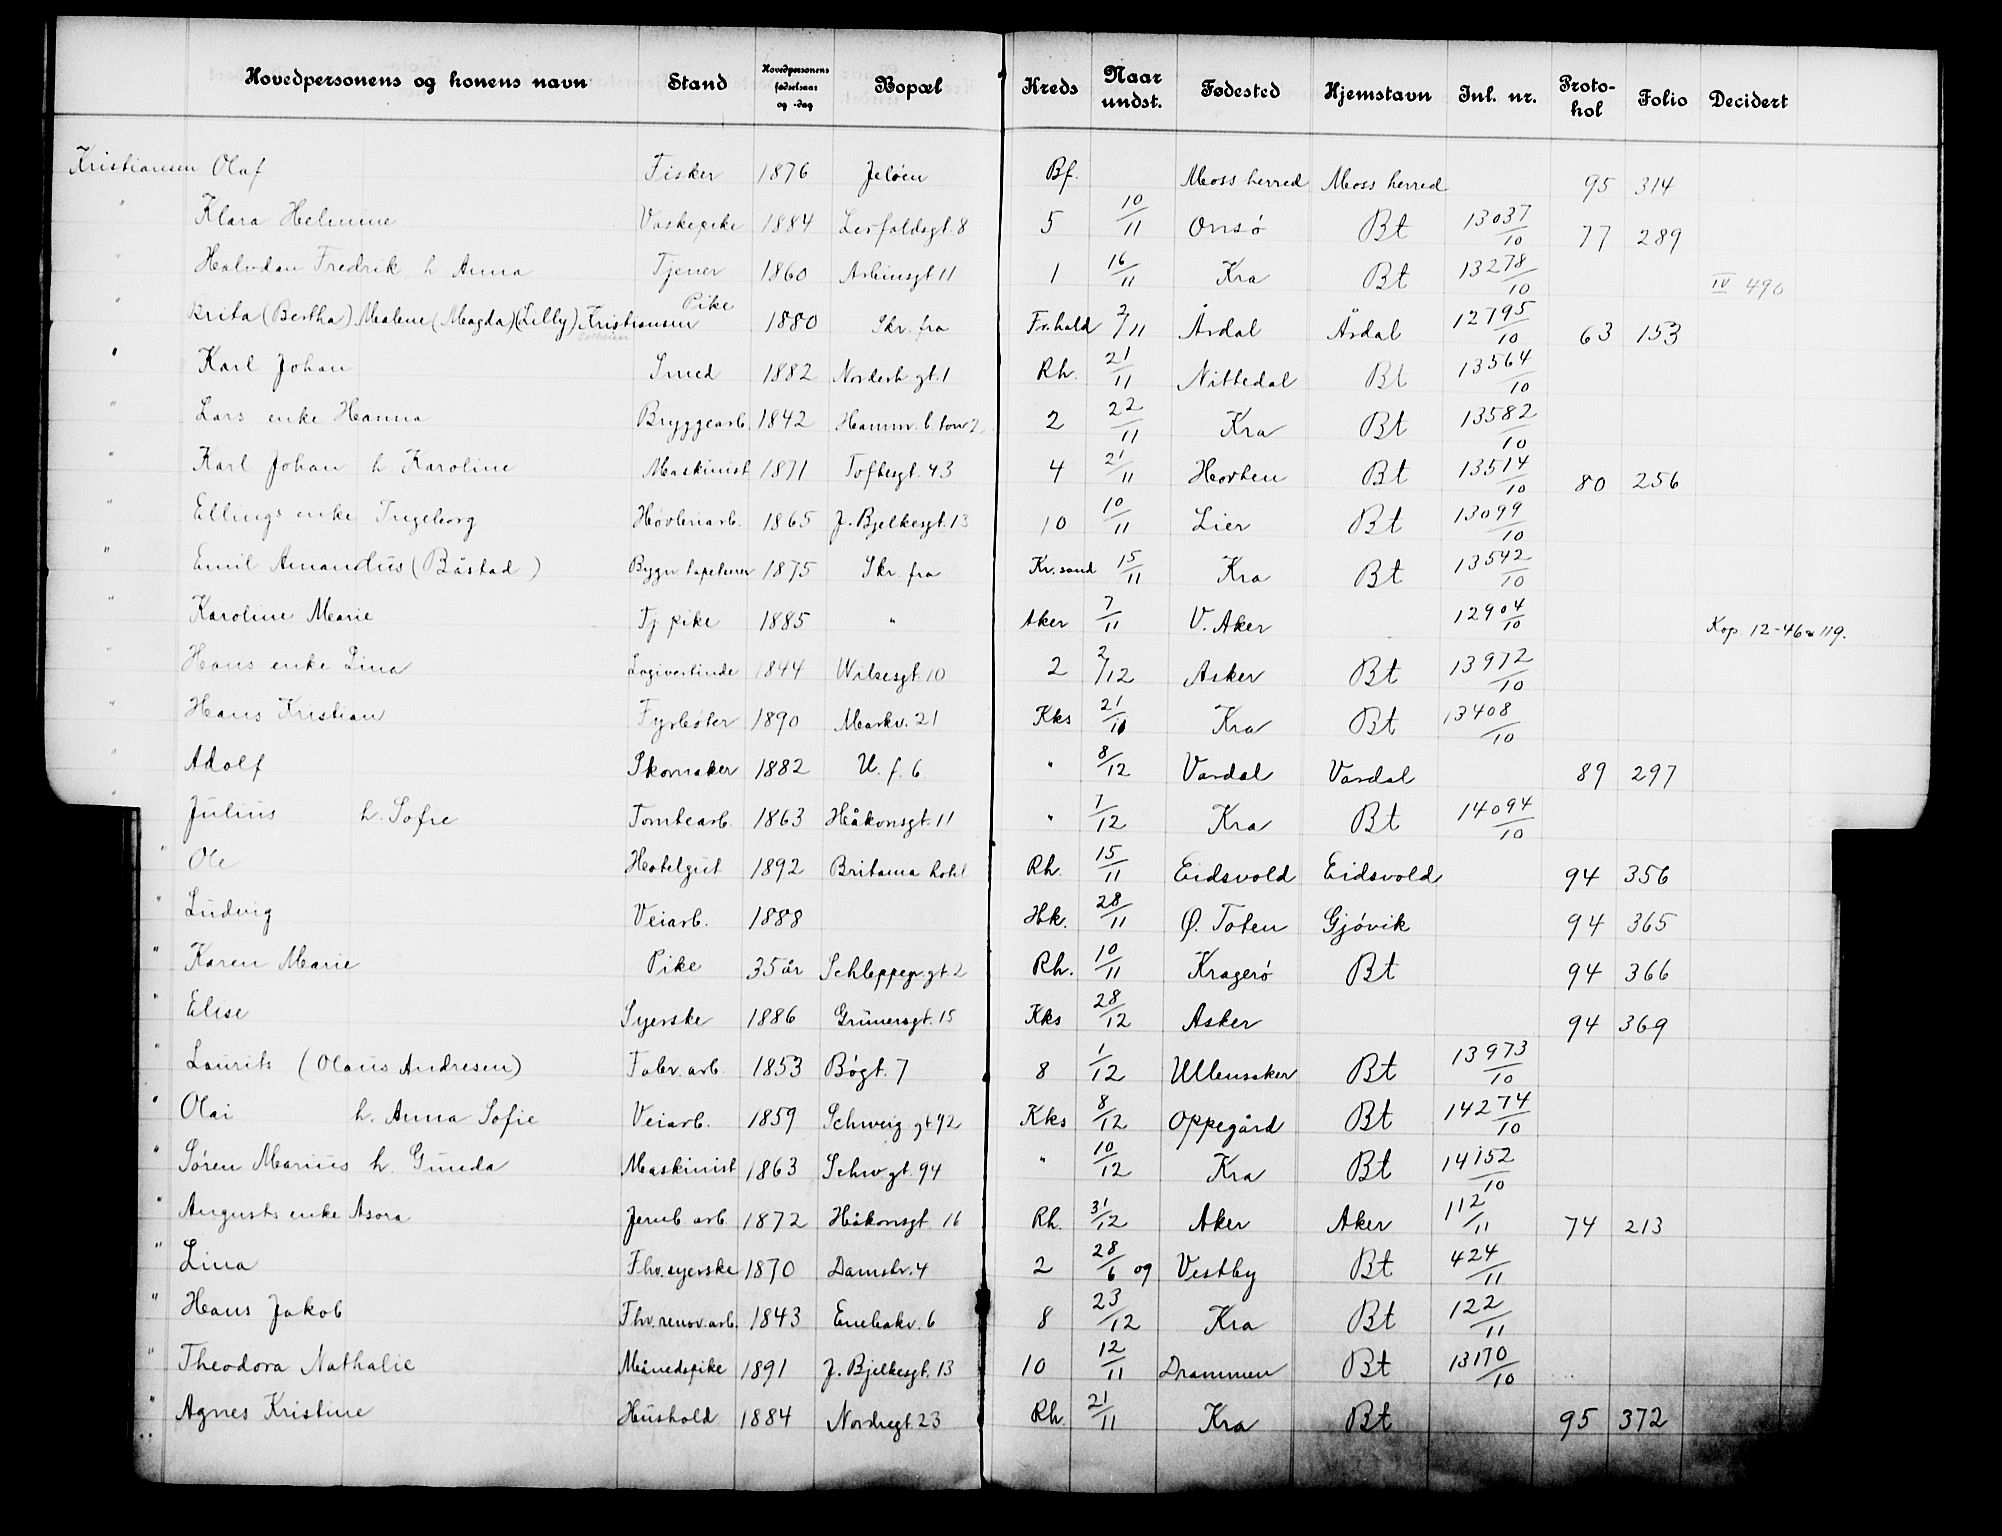 Hovedpersonens og konens navn | Stand | Hovedpersonens fødselsaar og -dag | Bopæl | Kreds | Naar undst. | Fødested | Hjemstavn | Inl. nr. | Protokol | Folio | Decidert
Kristiansen Olaf | Fisker | 1876 | Jeløen | Bf. | Moss herred | Moss herred | 95 | 314
" Klara Helmine | Vaskepike | 1884 | Lerfaldsgt. 8 | 5 | 10/11 | Onsø | Bt | 13037/10 | 77 | 289
" Halvdan Fredrik h Anna | Tjener | 1860 | Asbiensgt 11 | 1 | 16/11 | Kra | Bt | 13278/10 | IV 490
" Brita (Bertha) Malene (Magda) (Lilly) Kristiansen | Pike | 1880 | Skr. fra | Fr.hald | 2/11 | Årdal | Årdal | 12795/10 | 63 | 153
" Karl Johan | Smed | 1882 | Norderh gt. 1 | Rh. | 21/11 | Nittedal | Bt | 13564/10
" Lars enke Hanna | Bryggearb. | 1842 | Hamm. b. torv 2 | 2 | 22/11 | Kra | Bt | 13582/10
" Karl Johan h. Karoline | Maskinist | 1871 | Toftesgt. 43 | 4 | 21/11 | Horten | Bt | 13514/10 | 80 | 256
" Ellings enke Ingeborg | Høvleriarb. | 1865 | J. Bjelkesgt. 13 | 10 | 10/11 | Lier | Bt | 13099/10
" Emil Amandus (Båstad) | Bygn tapetserer | 1875 | Skr. fra | Kr. sand | 15/11 | Kra | Bt | 13542/10
" Karoline Marie | Tj. pike | 1885 | " | Aker | 7/11 | V. Aker | 12904/10 | Kop 12-46 119.
" Hans enke Lina | Logivertinde | 1844 | Wilsesgt. 10 | 2 | 2/12 | Asker | Bt | 13972/10
" Hans Kristian | Fyrbøter | 1890 | Markv. 21 | Kks | 21/10 | Kra | Bt | 13408/10
" Adolf | Skomaker | 1882 | U. f. b. | " | 8/12 | Vardal | Vardal | 89 | 297
" Julius h. Sofie | Tomtearb. | 1863 | Håkonsgt. 11 | " | 7/12 | Kra | Bt | 14094/10
" Ole | Hotelgut | 1892 | Britania hotel | Rh. | 15/11 | Eidsvold | Eidsvold | 94 | 356
" Ludvig | Veiarb. | 1888 | Hk. | 28/11 | Ø. Toten | Gjøvik | 94 | 365
" Karen Marie | Pike | 35 år | Schleppegr gt. 2 | Rh. | 10/11 | Kragerø | Bt | 94 | 366
" Elise | Syerske | 1886 | Grünersgt. 15 | Kks | 28/12 | Asker | 94 | 369
" Laurits (Olaus Andresen) | Fabr. arb. | 1853 | Bøgt. 7 | 8 | 1/12 | Ullensaker | Bt | 13973/10
" Olai h. Anna Sofie | Veiarb. | 1859 | Schweig gt 92 | Kks | 8/12 | Oppegård | Bt | 14274/10
" Søren Marius h. Gunda | Maskinist | 1863 | Schw. gt. 94 | " | 10/12 | Kra | Bt | 14152/10
" Augusts enke Asora | Jernb arb | 1872 | Håkonsgt. 16 | Rh. | 31/12 | Aker | Aker | 112/11 | 74 | 213
" Lina | Fhv. syerske | 1870 | Damstr. 4 | 2 | 28/6 09 | Vestby | Bt | 424/11
" Hans Jakob | Fhv. renov. arb. | 1843 | Enebakv. 6 | 8 | 23/12 | Kra | Bt | 122/11
" Theodora Nathalie | Månedspike | 1891 | J. Bjelkesgt. 13 | 10 | 12/11 | Drammen | Bt | 13170/10
" Agnes Kristine | Hushold | 1884 | Nordregt. 23 | Rh. | 21/11 | Kra | Bt | 95 | 372